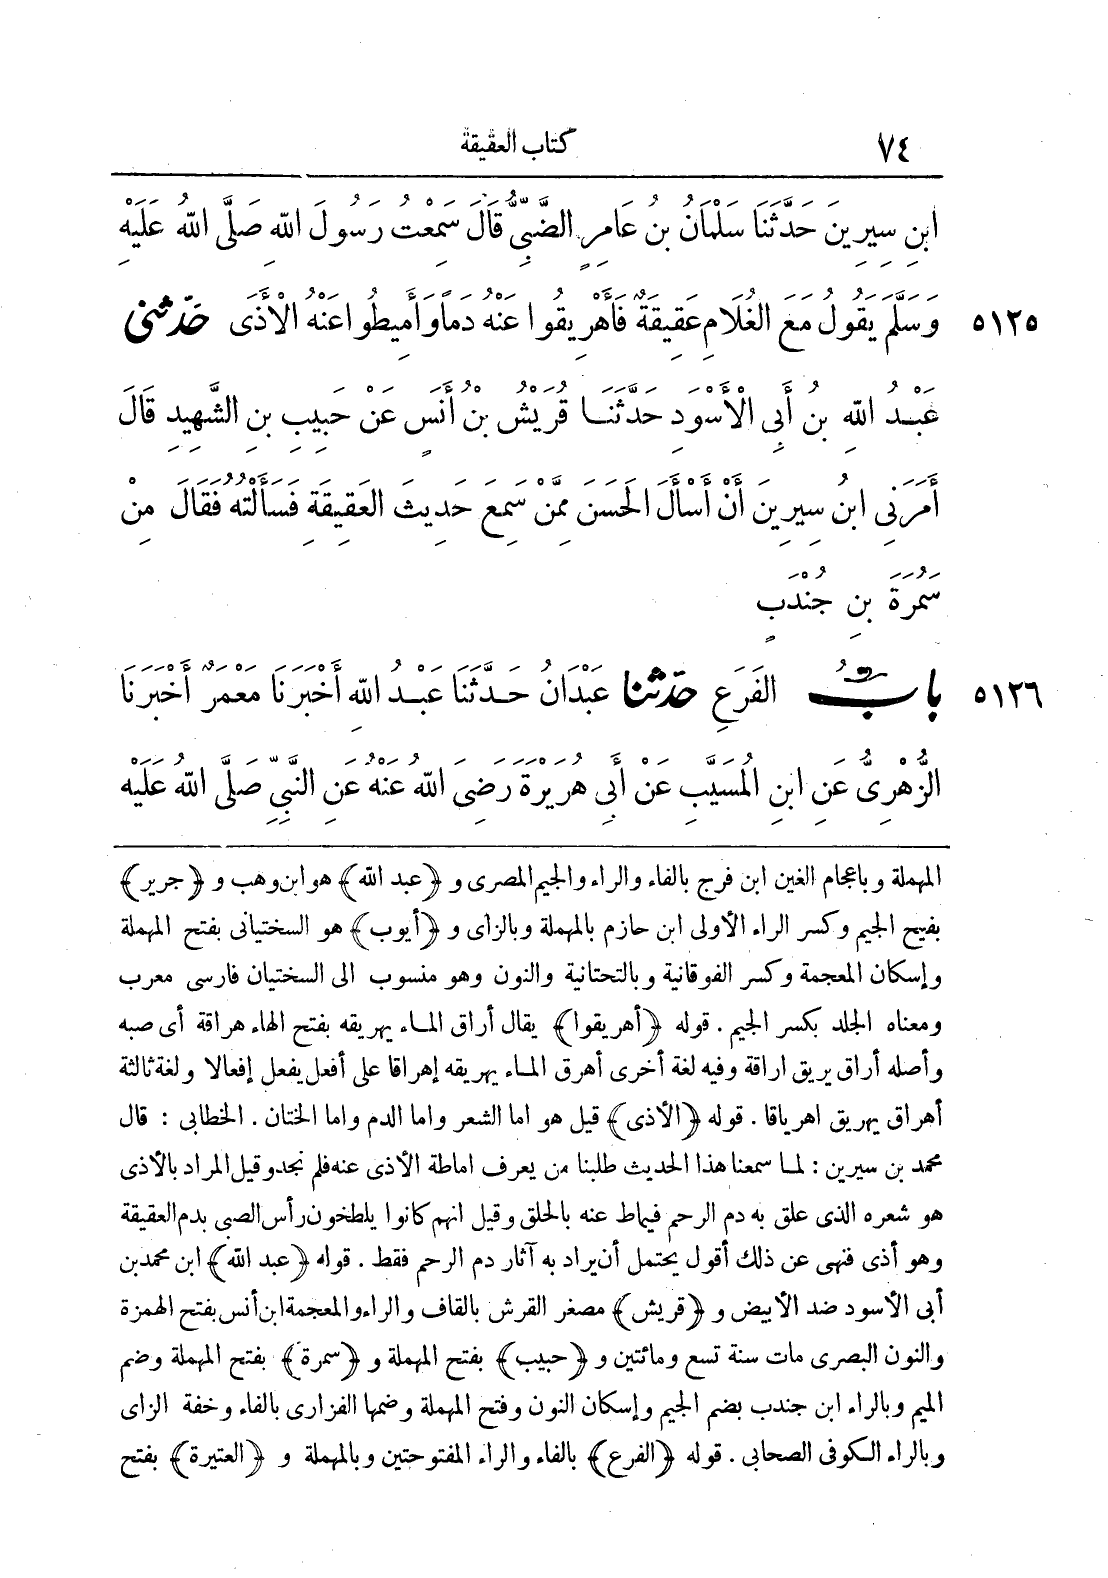 ٧٤ كتاب العقيقة
ابنِ سِيرِينَ حَدَّثَنَا سَلْمَانُ بنُ عَامِرٍ الضَّبِّيُّ قَالَ سَمِعْتُ رَسُولَ اللهِ صَلَّى اللهُ عَلَيْهِ
٥١٢٥ وَسَلَّمَ يَقُولُ مَعَ الغُلَامِ عَقِيقَةٌ فَأَهْرِيقُوا عَنْهُ دَمًا وَأَمِيطُوا عَنْهُ الْأَذَى حَدَّثَنِى
عَبْدُ اللهِ بنُ أَبِى الْأَسْوَدِ حَدَّثَنَا قُرَيْشُ بْنُ أَنَسٍ عَنْ حَبِيبِ بنِ الشَّهِيدِ قَالَ
أَمَرَنِى ابنُ سِيرِينَ أَنْ أَسْأَلَ الحَسَنَ مِمَّنْ سَمِعَ حَدِيثَ العَقِيقَةِ فَسَأَلْتُهُ فَقَالَ مِنْ
سَمُرَةَ بنِ جُنْدَبٍ
٥١٢٦ بابُ الفَرَعِ حَدَّثَنا عَبْدَانُ حَدَّثَنَا عَبْدُ اللهِ أَخْبَرَنَا مَعْمَرٌ أَخْبَرَنَا
الزُّهْرِىُّ عَنِ ابنِ المُسَيَّبِ عَنْ أَبِى هُرَيْرَةَ رَضِىَ اللهُ عَنْهُ عَنِ النَّبِيِّ صَلَّى اللهُ عَلَيْهِ
المهملة وباعجام الغين ابن فرج بالفاء والراء والجيم المصرى و ﴿عبد الله﴾ هو ابن وهب و ﴿جرير﴾
بفتح الجيم وكسر الراء الأولى ابن حازم بالمهملة وبالزاى و ﴿أيوب﴾ هو السختيانى بفتح المهملة
وإسكان المعجمة وكسر الفوقانية وبالتحتانية والنون وهو منسوب الى السختيان فارسى معرب
ومعناه الجلد بكسر الجيم . قوله ﴿أهريقوا﴾ يقال أراق الماء يهريقه بفتح الهاء هراقة أى صبه
وأصله أراق يريق اراقة وفيه لغة أخرى أهرق الماء يهريقه إهراقا على أفعل يفعل إفعالا ولغة ثالثة
أهراق يهريق اهرياقا . قوله ﴿الأذى﴾ قيل هو اما الشعر واما الدم واما الختان . الخطابى : قال
محمد بن سيرين : لما سمعنا هذا الحديث طلبنا من يعرف اماطة الأذى عنه فلم نجد وقيل المراد بالأذى
هو شعره الذى علق به دم الرحم فيماط عنه بالحلق وقيل انهم كانوا يلطخون رأس الصبى بدم العقيقة
وهو أذى فنهى عن ذلك أقول يحتمل أن يراد به آثار دم الرحم فقط . قوله ﴿عبد الله﴾ ابن محمد بن
أبى الأسود ضد الأبيض و ﴿قريش﴾ مصغر القرش بالقاف والراء والمعجمة ابن أنس بفتح الهمزة
والنون البصرى مات سنة تسع ومائتين و ﴿حبيب﴾ بفتح المهملة و ﴿سمرة﴾ بفتح المهملة وضم
الميم وبالراء ابن جندب بضم الجيم وإسكان النون وفتح المهملة وضمها الفزارى بالفاء وخفة الزاى
وبالراء الكوفى الصحابى . قوله ﴿الفرع﴾ بالفاء والراء المفتوحتين وبالمهملة و ﴿العتيرة﴾ بفتح